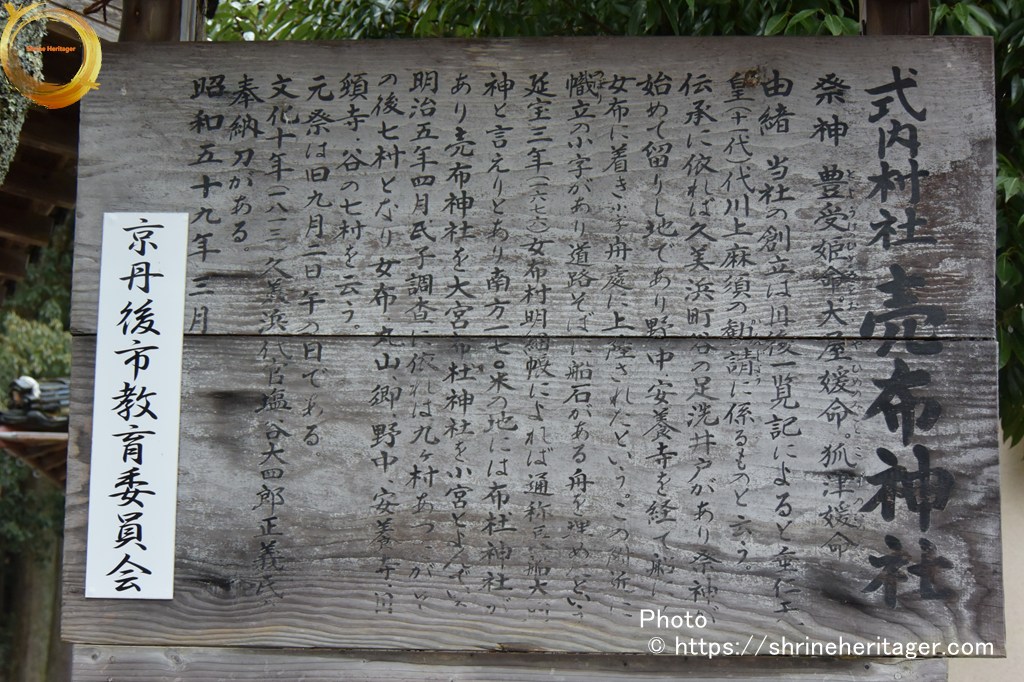 式内村社 売布神社
祭神 豊受姫命大屋媛命。狐津媛命
由緒 当社の創立は旧後一覧記によると垂仁天
皇(十一代)代川上麻須の勧請に係るものと云う。
伝承に依れば久美浜町 谷の足洗井戸があり祭神が
始めて留りし地であり野中安養寺を経て
女布に着き小字舟處に上陸されたという。この附近に
幟立の小字があり道路そばに船石がある舟を埋めたとい
延宝三年(一六七 )女布村明細帳によれば通称 船大
神と言えりとあり南方一七〇米の地には布杜神社が
あり売布神社を大宮布杜神社を小宮とよんで
明治五年四月氏子調査に依れば九ヶ村あつ がい
の後七村となり女布、丸山、郷、野中、安養寺、円
頓寺、谷の七村を云う。
元祭は旧九月二日午の日である。
文化十年(一八一三)久美浜代官塩谷大四郎正義氏
奉納刀がある。
昭和五十九年三月
京丹後市教育委員会
Shrine Heritager
Photo
© https://shrineheritager.com